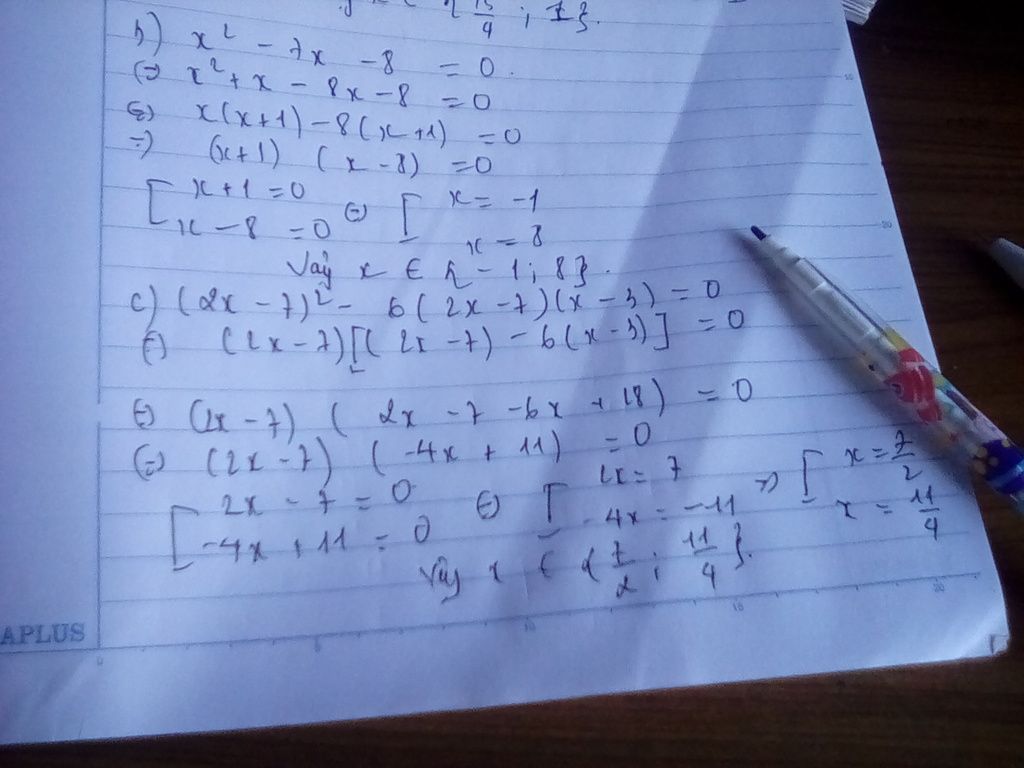 15/4 ; 1}.
b) x² - 7x - 8 = 0.
(=) x² + x - 8x - 8 = 0
(=) x(x+1) - 8(x+1) = 0
=) (x+1) (x - 8) = 0
[ x + 1 = 0 (=) [ x = -1
x - 8 = 0 x = 8
Vậy x ∈ { -1; 8}.
c) (2x - 7)² - 6(2x - 7)(x - 3) = 0
(=) (2x - 7)[(2x - 7) - 6(x - 3)] = 0
(=) (2x - 7) (2x - 7 - 6x + 18) = 0
(=) (2x - 7) (-4x + 11) = 0
[ 2x - 7 = 0 (=) [ 2x = 7 => [ x = 7/2
-4x + 11 = 0 -4x = -11 x = 11/4
Vậy x ∈ { 7/2 ; 11/4 }.
APLUS
0 5 10 15 20
10
20